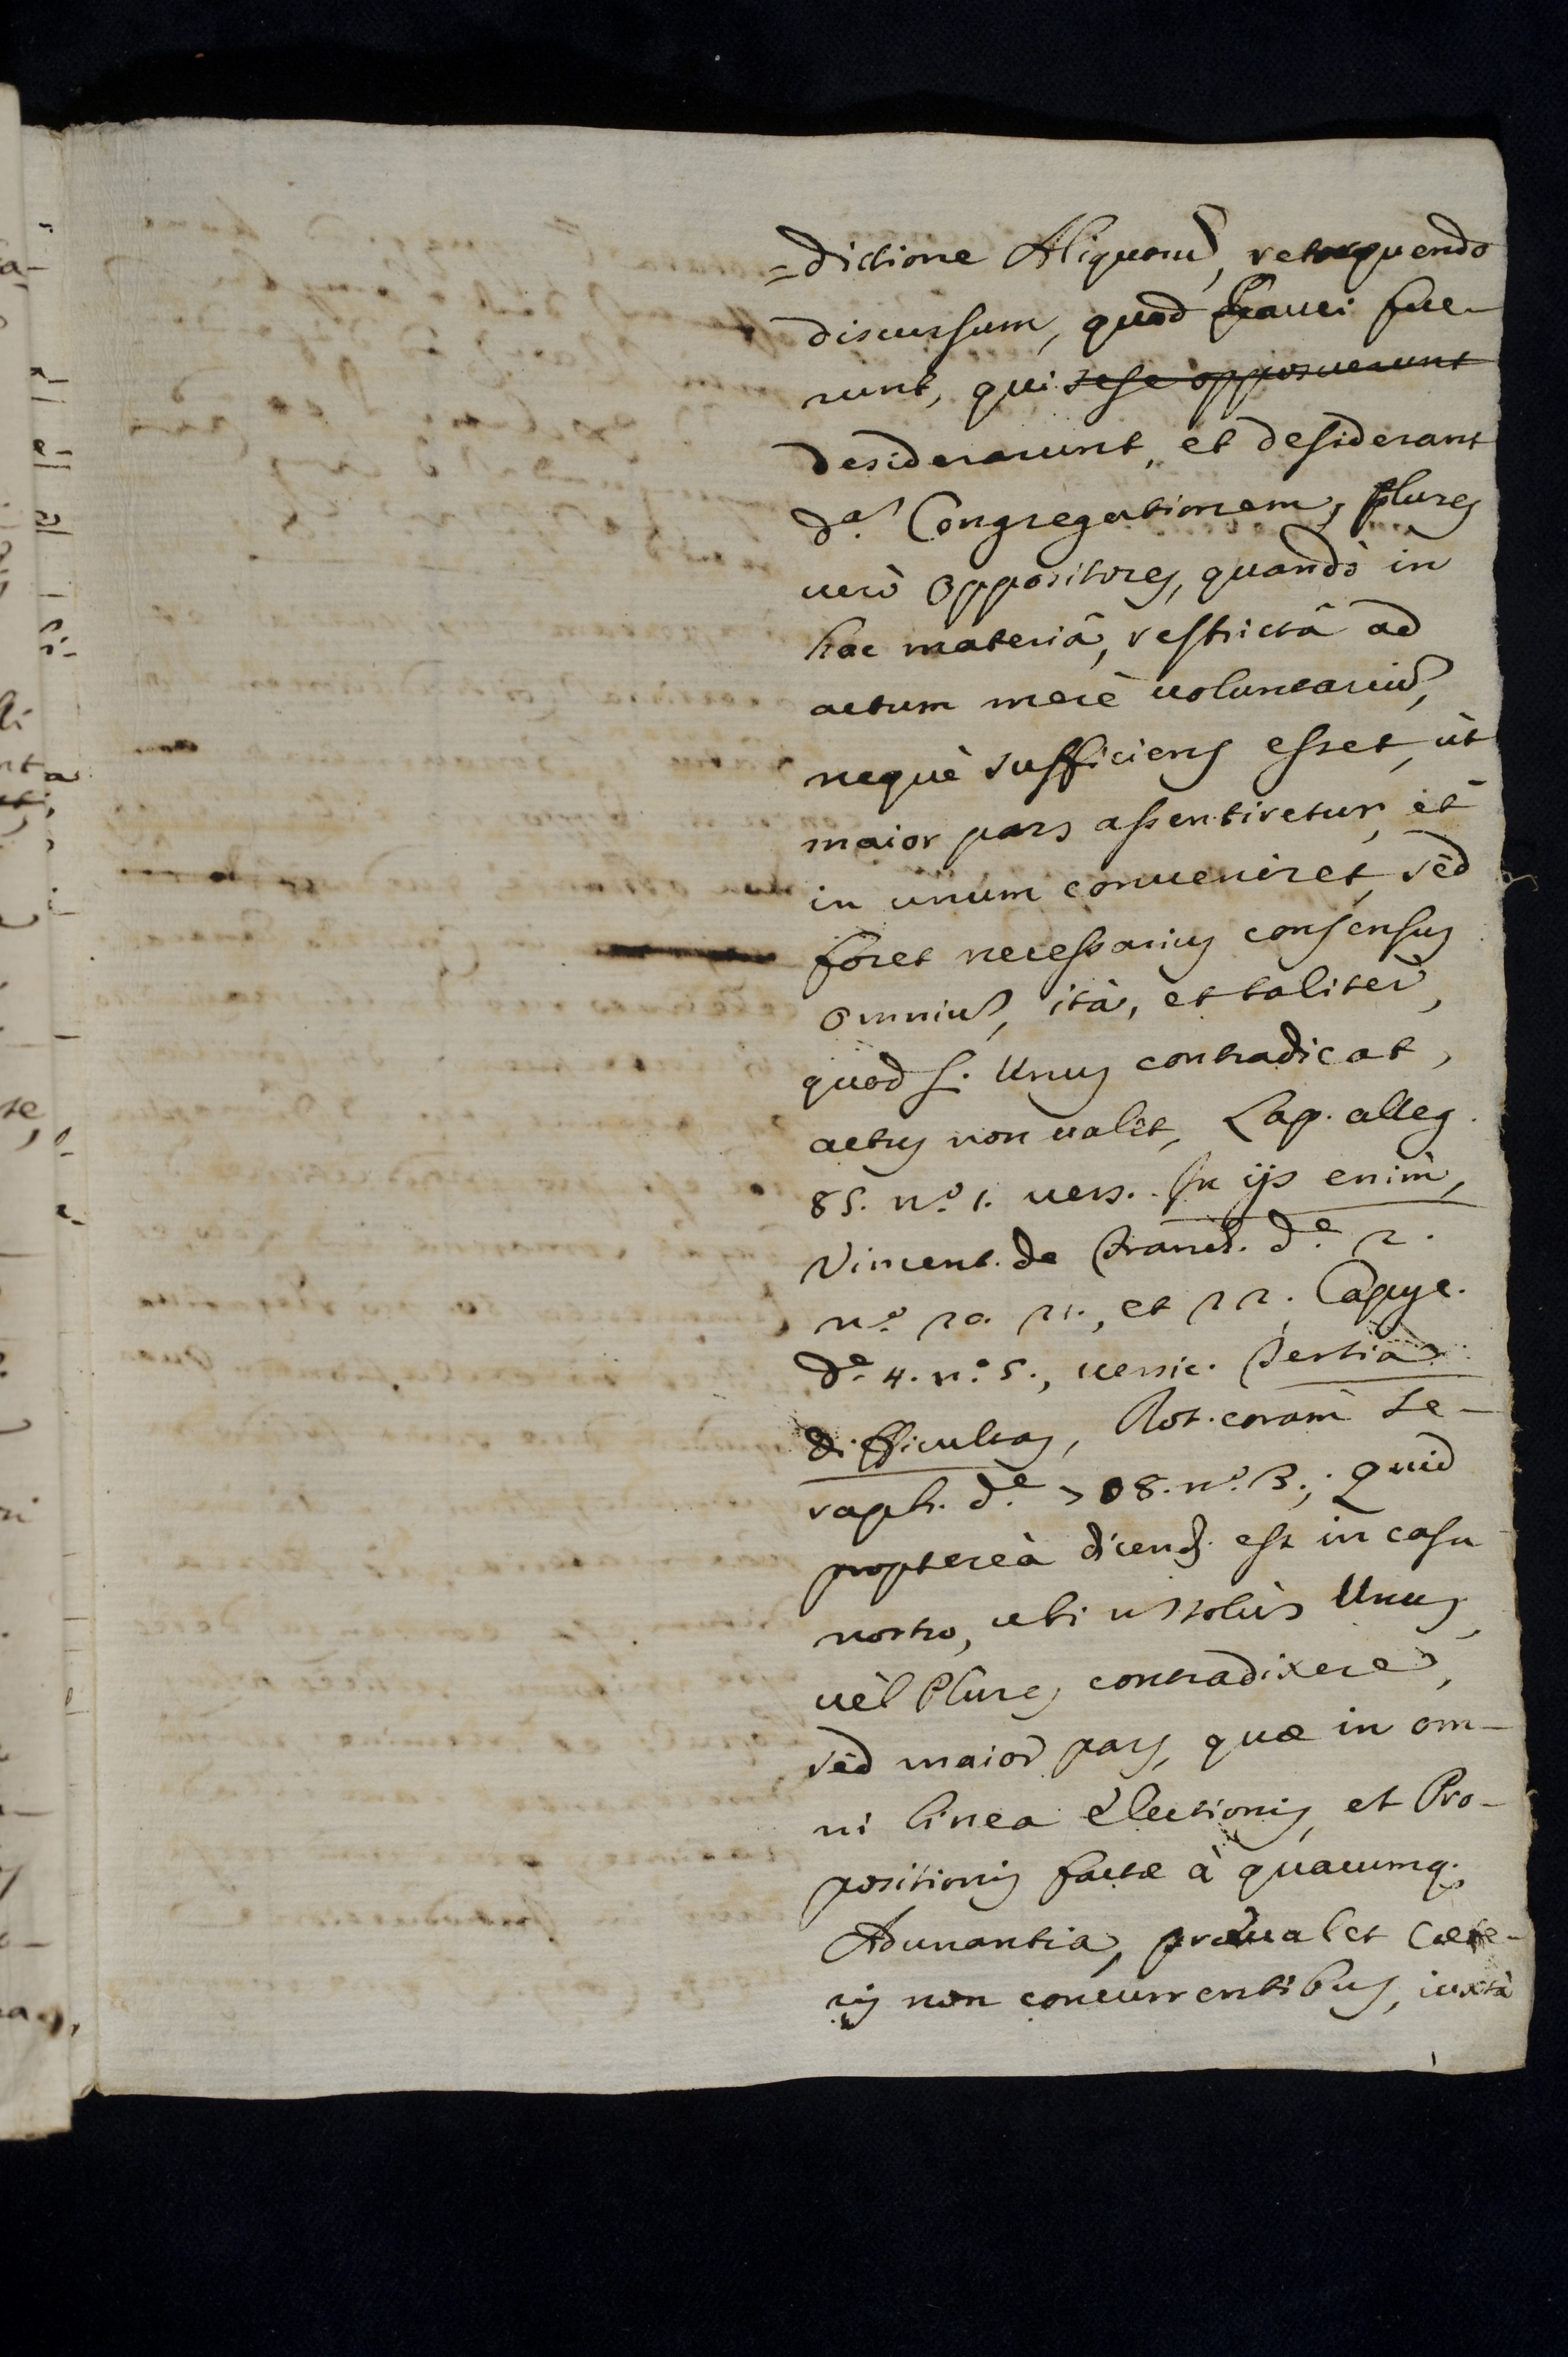 =dictione Aliquorũ, retorquendo
discursum, quod Pauci fue-
runt, qui sese opposuerunt
desiderarunt, et desiderant
dᵃ. Congregationem, plures
uerò Oppositores, quandò in
hac materiâ, restrictâ ad
actum merè uoluntariũ,
nequè sufficiens esset, ùt
maior pars assentiretur, èt
in unum conueniret, sèd
foret necessarius consensus
omniũ, ità, et talitèr,
quod si Unus contradicat,
actus non ualèt, Lap. alleg.
85. nº. 1. uers. In ijs enim,
Vincent. de Franch. dᵉ. 2.
nº. 20. 21., et 22. Capyc.
dᵉ. 4. nº. 5., uersic. Tertia
difficultas, Rot. coram Se-
raph. dᵉ. 708. nº. 3.; Quid
proptereà dicend. est in casu
nostro, ubi ñ solùs Unus,
uèl Plures contradixere,
sèd maior pars, quæ in om-
ni linea Electionis, et Pro-
positionis factæ à quacumq.
Adunantia, præualet cæte-
ris non concurrentibus, iuxtà